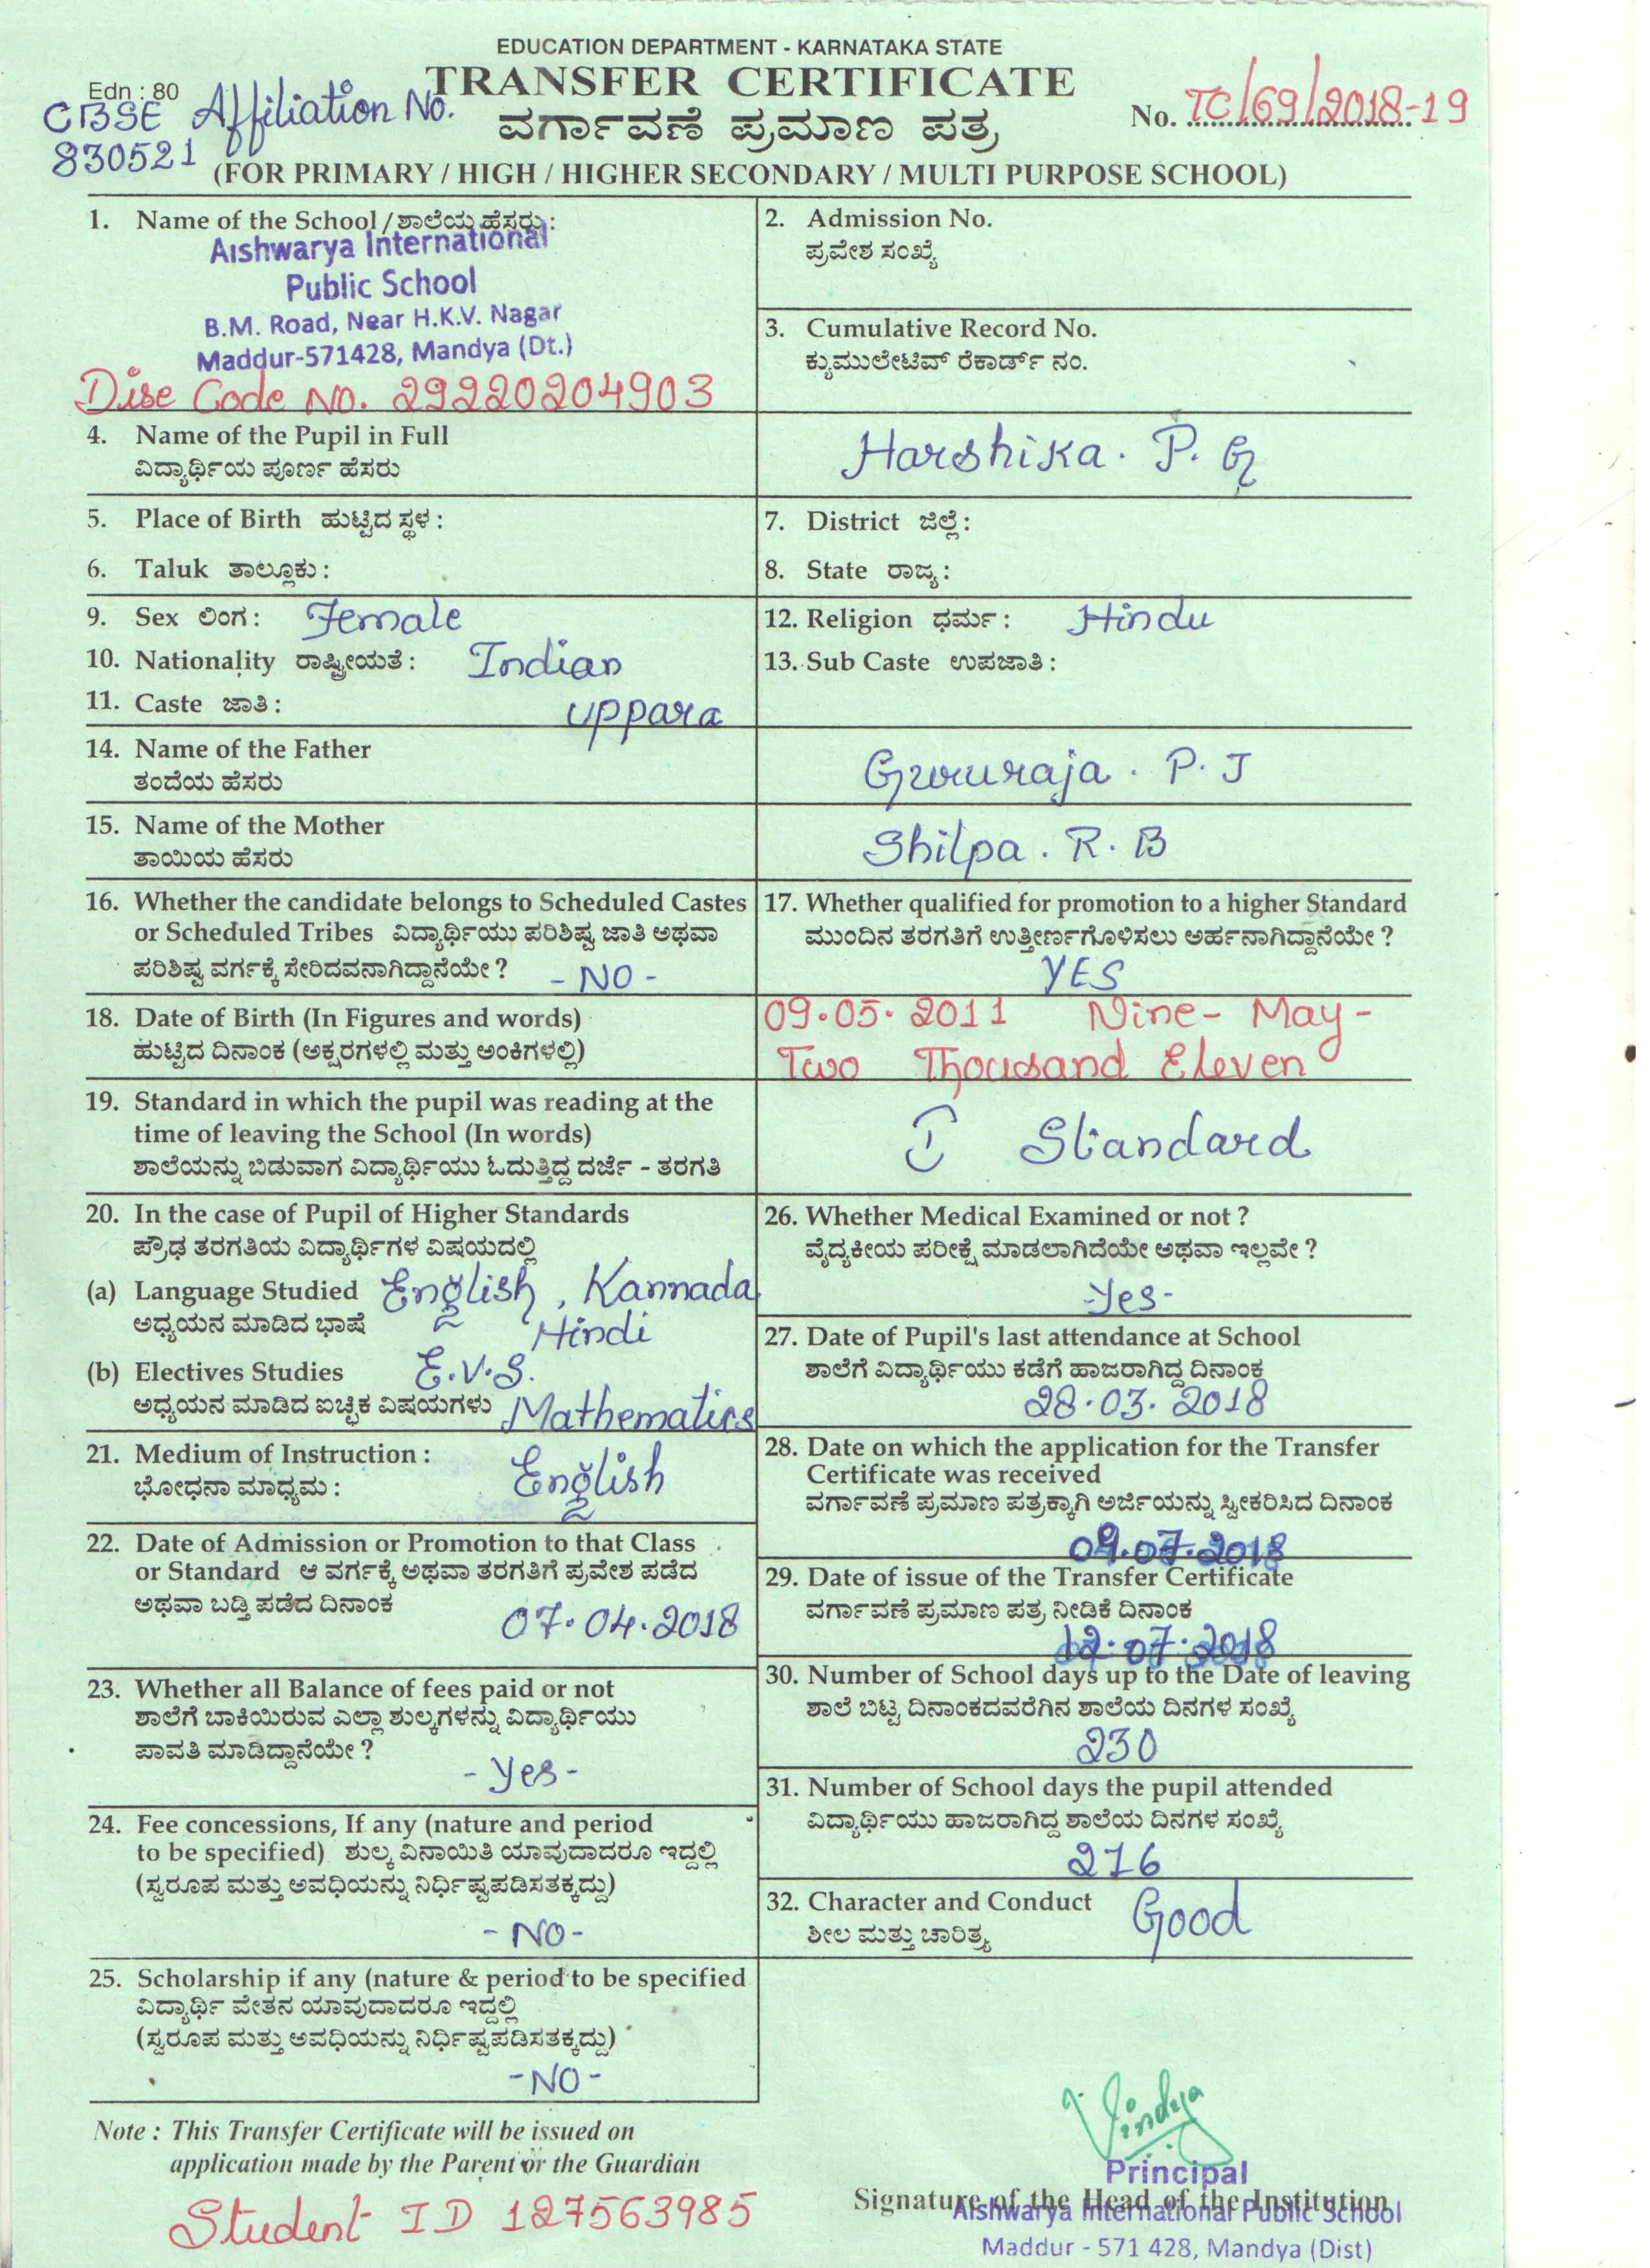 EDUCATION DEPARTMENT - KARNATAKA STATE
Edn : 80
TRANSFER CERTIFICATE
CBSE Affiliation No.
830521
No. TC/69/2018-19
ವರ್ಗಾವಣೆ ಪ್ರಮಾಣ ಪತ್ರ
(FOR PRIMARY / HIGH / HIGHER SECONDARY / MULTI PURPOSE SCHOOL)
1. Name of the School / ಶಾಲೆಯ ಹೆಸರು :
Aishwarya International
Public School
B.M. Road, Near H.K.V. Nagar
Maddur-571428, Mandya (Dt.)
Dise Code No. 29220204903
2. Admission No.
ಪ್ರವೇಶ ಸಂಖ್ಯೆ
3. Cumulative Record No.
ಕ್ಯುಮುಲೇಟಿವ್ ರೆಕಾರ್ಡ್ ನಂ.
4. Name of the Pupil in Full
ವಿದ್ಯಾರ್ಥಿಯ ಪೂರ್ಣ ಹೆಸರು
Harshika. P. G
5. Place of Birth ಹುಟ್ಟಿದ ಸ್ಥಳ :
6. Taluk ತಾಲ್ಲೂಕು :
7. District ಜಿಲ್ಲೆ :
8. State ರಾಜ್ಯ :
9. Sex ಲಿಂಗ : Female
10. Nationality ರಾಷ್ಟ್ರೀಯತೆ : Indian
11. Caste ಜಾತಿ : Uppara
12. Religion ಧರ್ಮ : Hindu
13. Sub Caste ಉಪಜಾತಿ :
14. Name of the Father
ತಂದೆಯ ಹೆಸರು
Gururaja. P. J
15. Name of the Mother
ತಾಯಿಯ ಹೆಸರು
Shilpa. R. B
16. Whether the candidate belongs to Scheduled Castes
or Scheduled Tribes ವಿದ್ಯಾರ್ಥಿಯು ಪರಿಶಿಷ್ಟ ಜಾತಿ ಅಥವಾ
ಪರಿಶಿಷ್ಟ ವರ್ಗಕ್ಕೆ ಸೇರಿದವನಾಗಿದ್ದಾನೆಯೇ ? - NO -
17. Whether qualified for promotion to a higher Standard
ಮುಂದಿನ ತರಗತಿಗೆ ಉತ್ತೀರ್ಣಗೊಳಿಸಲು ಅರ್ಹನಾಗಿದ್ದಾನೆಯೇ ?
YES
18. Date of Birth (In Figures and words)
ಹುಟ್ಟಿದ ದಿನಾಂಕ (ಅಕ್ಷರಗಳಲ್ಲಿ ಮತ್ತು ಅಂಕಿಗಳಲ್ಲಿ)
09.05.2011 Nine- May-
Two Thousand Eleven
19. Standard in which the pupil was reading at the
time of leaving the School (In words)
ಶಾಲೆಯನ್ನು ಬಿಡುವಾಗ ವಿದ್ಯಾರ್ಥಿಯು ಓದುತ್ತಿದ್ದ ದರ್ಜೆ - ತರಗತಿ
I Standard
20. In the case of Pupil of Higher Standards
ಪ್ರೌಢ ತರಗತಿಯ ವಿದ್ಯಾರ್ಥಿಗಳ ವಿಷಯದಲ್ಲಿ
(a) Language Studied English, Kannada
ಅಧ್ಯಯನ ಮಾಡಿದ ಭಾಷೆ Hindi
(b) Electives Studies E.V.S.
ಅಧ್ಯಯನ ಮಾಡಿದ ಐಚ್ಛಿಕ ವಿಷಯಗಳು Mathematics
21. Medium of Instruction :
ಭೋಧನಾ ಮಾಧ್ಯಮ : English
22. Date of Admission or Promotion to that Class
or Standard ಆ ವರ್ಗಕ್ಕೆ ಅಥವಾ ತರಗತಿಗೆ ಪ್ರವೇಶ ಪಡೆದ
ಅಥವಾ ಬಡ್ತಿ ಪಡೆದ ದಿನಾಂಕ
07.04.2018
23. Whether all Balance of fees paid or not
ಶಾಲೆಗೆ ಬಾಕಿಯಿರುವ ಎಲ್ಲಾ ಶುಲ್ಕಗಳನ್ನು ವಿದ್ಯಾರ್ಥಿಯು
ಪಾವತಿ ಮಾಡಿದ್ದಾನೆಯೇ ?
- Yes -
24. Fee concessions, If any (nature and period
to be specified) ಶುಲ್ಕ ವಿನಾಯಿತಿ ಯಾವುದಾದರೂ ಇದ್ದಲ್ಲಿ
(ಸ್ವರೂಪ ಮತ್ತು ಅವಧಿಯನ್ನು ನಿರ್ಧಿಷ್ಟಪಡಿಸತಕ್ಕದ್ದು)
- NO -
25. Scholarship if any (nature & period to be specified
ವಿದ್ಯಾರ್ಥಿ ವೇತನ ಯಾವುದಾದರೂ ಇದ್ದಲ್ಲಿ
(ಸ್ವರೂಪ ಮತ್ತು ಅವಧಿಯನ್ನು ನಿರ್ಧಿಷ್ಟಪಡಿಸತಕ್ಕದ್ದು)
- NO -
26. Whether Medical Examined or not ?
ವೈದ್ಯಕೀಯ ಪರೀಕ್ಷೆ ಮಾಡಲಾಗಿದೆಯೇ ಅಥವಾ ಇಲ್ಲವೇ ?
- Yes -
27. Date of Pupil's last attendance at School
ಶಾಲೆಗೆ ವಿದ್ಯಾರ್ಥಿಯು ಕಡೆಗೆ ಹಾಜರಾಗಿದ್ದ ದಿನಾಂಕ
28.03.2018
28. Date on which the application for the Transfer
Certificate was received
ವರ್ಗಾವಣೆ ಪ್ರಮಾಣ ಪತ್ರಕ್ಕಾಗಿ ಅರ್ಜಿಯನ್ನು ಸ್ವೀಕರಿಸಿದ ದಿನಾಂಕ
09.07.2018
29. Date of issue of the Transfer Certificate
ವರ್ಗಾವಣೆ ಪ್ರಮಾಣ ಪತ್ರ ನೀಡಿಕೆ ದಿನಾಂಕ
12.07.2018
30. Number of School days up to the Date of leaving
ಶಾಲೆ ಬಿಟ್ಟ ದಿನಾಂಕದವರೆಗಿನ ಶಾಲೆಯ ದಿನಗಳ ಸಂಖ್ಯೆ
230
31. Number of School days the pupil attended
ವಿದ್ಯಾರ್ಥಿಯು ಹಾಜರಾಗಿದ್ದ ಶಾಲೆಯ ದಿನಗಳ ಸಂಖ್ಯೆ
216
32. Character and Conduct Good
ಶೀಲ ಮತ್ತು ಚಾರಿತ್ರ್ಯ
Note : This Transfer Certificate will be issued on
application made by the Parent or the Guardian
Student ID 127563985
Vindya
Principal
Signature of the Head of the Institution
Aishwarya International Public School
Maddur - 571 428, Mandya (Dist)